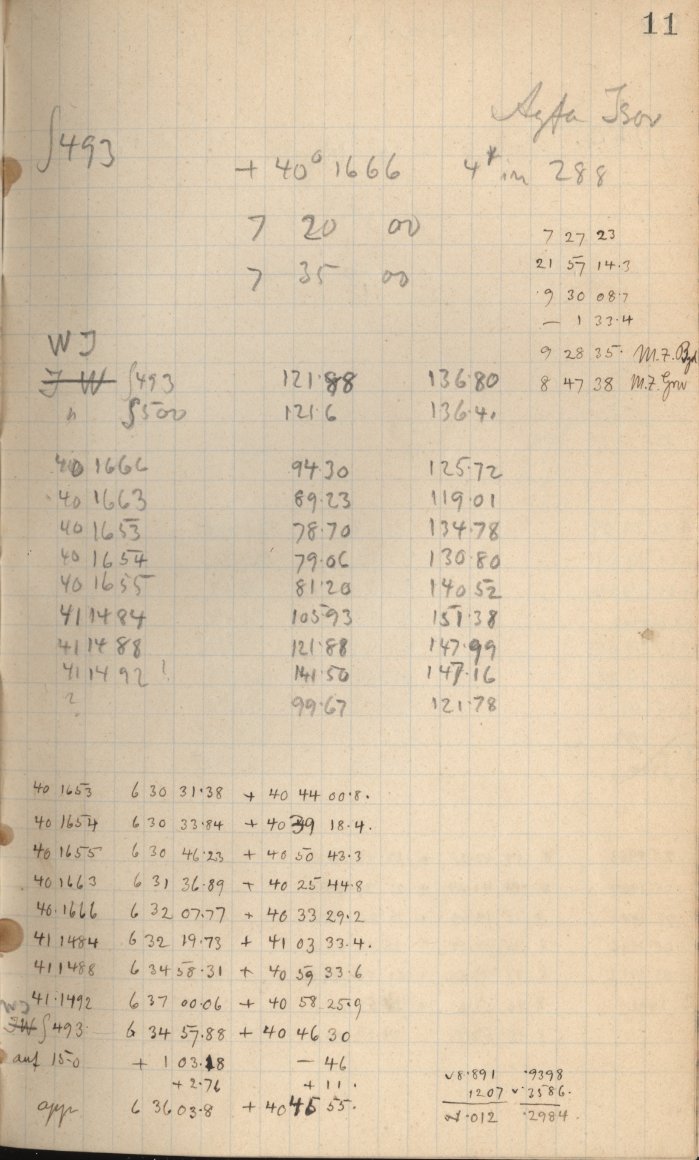 11
Agfa Isov
∫493
+ 40° 1666 4* in 288
7 20 00
7 35 00
7 27 23
21 57 14.3
9 30 08.7
— 1 33.4
9 28 35.
8 47 38
WJ
J W ∫493 121.88 136.80
" ∫500 121.6 136.4.
40 1666 94.30 125.72
40 1663 89.23 119.01
40 1653 78.70 134.78
40 1654 79.06 130.80
40 1655 81.20 140.52
41 1484 105.93 151.38
41 1488 121.88 147.99
41 1492 ! 141.50 147.16
? 99.67 121.78
40 1653 6 30 31.38 + 40 44 00.8.
40 1654 6 30 33.84 + 40 39 18.4.
40 1655 6 30 46.23 + 40 50 43.3
40 1663 6 31 36.89 + 40 25 44.8
40.1666 6 32 07.77 + 40 33 29.2
41 1484 6 32 19.73 + 41 03 33.4.
41 1488 6 34 58.31 + 40 59 33.6
41.1492 6 37 00.06 + 40 58 25.9
WJ
JW ∫493 6 34 57.88 + 40 46 30
auf 1950 + 1 03.18 — 46
+ 2.76 + 11.
app 6 36 03.8 + 40 45 55.
8.891 .9398
1207 .3586.
.012 .2984